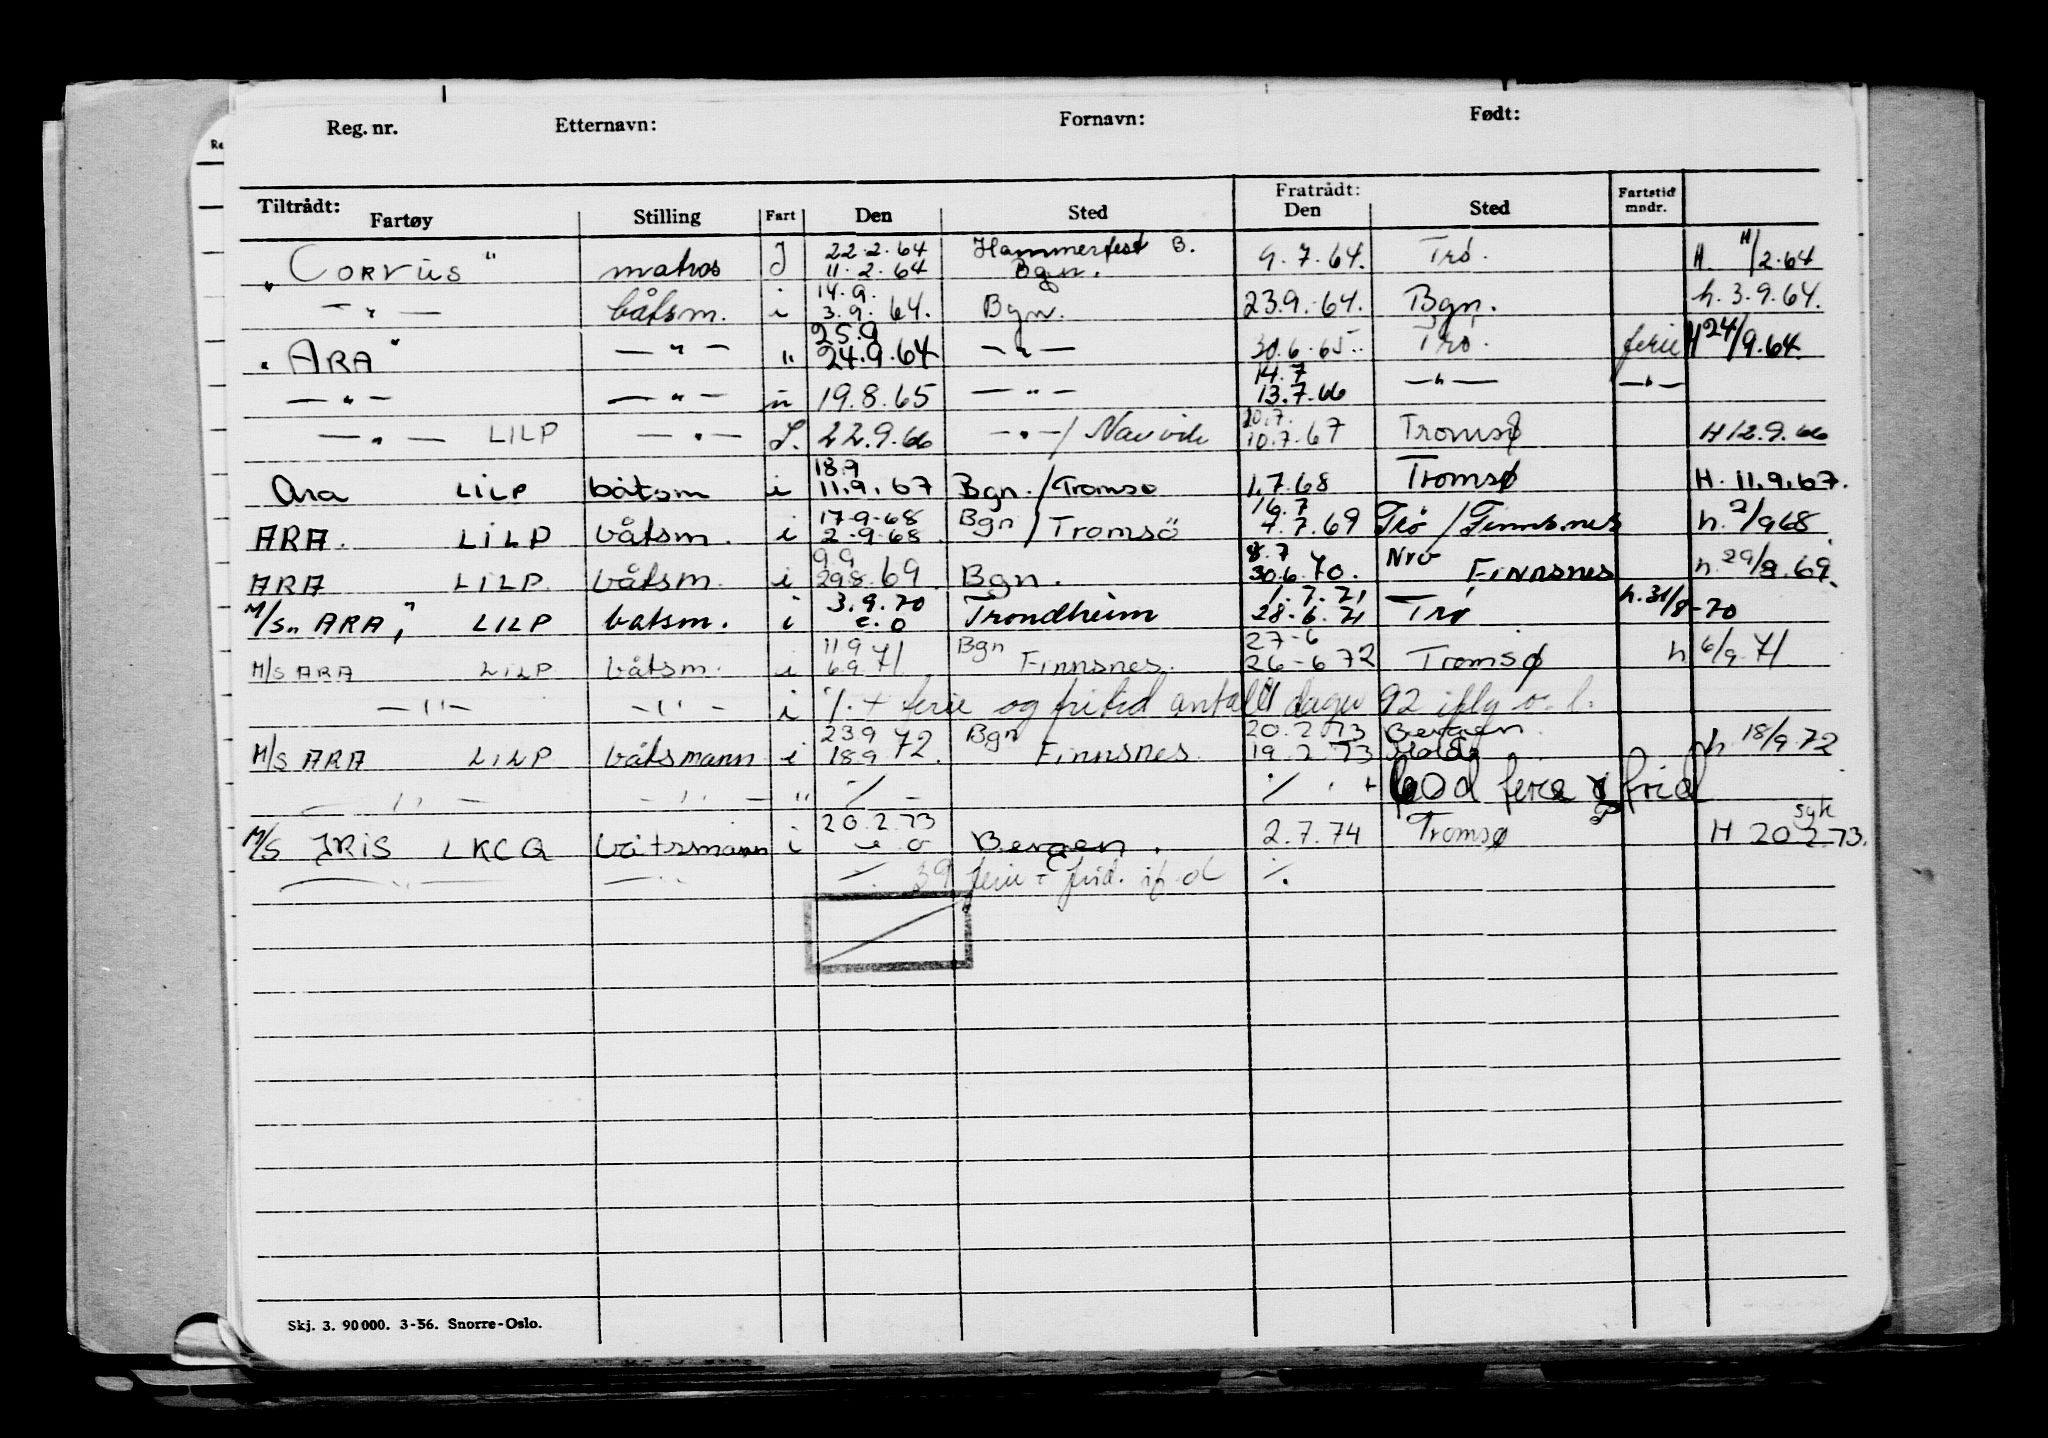 Reg. nr. Etternavn: Fornavn: Født:
Tiltrådt: Fratrådt: Fartstid
Fartøy Stilling Fart Den Sted Den Sted mndr.
22.2.64 Hammerfest B. 11
"Corvus" matros I 11.2.64 Bgn. 9.7.64. Trø. H. /2.64
14.9.
— " — båtsm. i 3.9. 64. Bgn. 23.9.64. Bgn. h. 3.9.64.
25.9
"ARA" — " — " 24.9.64 — " — 30.6.65. Trø. ferie H 24/9.64.
14.7
— " — — " — 19.8.65 — " — 13.7.66 — " — — " —
20.7.
— " — LILP — " — I. 22.9.66 — " — / Narvik 10.7.67 Tromsø H 12.9.66
18.9
Ara LILP båtsm i 11.9.67 Bgn. / Tromsø 1.7.68 Tromsø H. 11.9.67.
17.9.68 16.7
ARA. LILP båtsm. i 2.9.68. Bgn / Tromsö 7.7.69 Trö / Finnsnes h. 2/9 68
9.9 8.7
ARA LILP. båtsm. i 29.8.69. Bgn. 30.6.70. Finnsnes h. 29/8.69.
3.9.70 1.7.71
M/S "ARA" LILP batsm. i e.o Trondheim 28.6.71 Trø h. 31/8-70
11.9 Bgn 27-6
M/S ARA LILP båtsm. i 6.9.71 Finnsnes. 26-6 72 Tromsø h 6/9.71
— " — — " — i ./. + ferie og fritid antall dager 92 iflg o. l.
23.9 Bgn 20.2.73 Bergen
M/S ARA LILP båtsmann i 18.9.72. Finnsnes. 19.2.73 Molde h 18/9.72
— " — — " — " ./. — ./. + 60 d ferie & frid
20.2.73 syk
M/S IRIS LKCQ båtsmann i e o Bergen. 2.7.74 Tromsø H 20.2.73.
— " — — " — ./. 39 ferie & frid. if. d ./.
Skj. 3. 90000. 3-56. Snorre-Oslo.